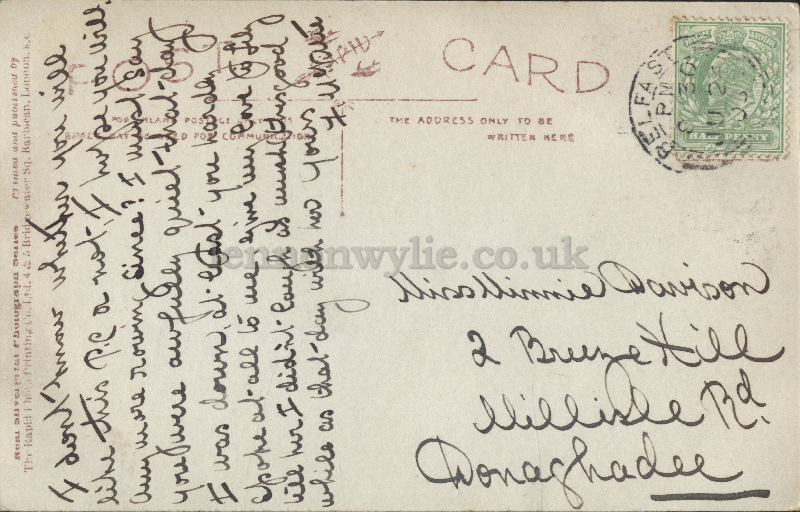 POST CARD
FOR INLAND POSTAGE ONLY THIS
SPACE MAY BE USED FOR COMMUNICATION
THE ADDRESS ONLY TO BE
WRITTEN HERE
BELFAST
8 30 PM
JU 2
I don't know whether you will
like this P.C or not. I hope you will.
Any more rowing since? I must say
you were awfully quiet that day
I was down, at least you hardly
spoke at all to me. Give my love to Lily
tell her I didn't laugh as much this good
while as that day with her. Yours
Miss Minnie Davison
2 Breeze Hill
Millisle Rd.
Donaghadee
Real Silverprint Photograph Series Printed and published by
The Rapid Photo Printing Co., Ltd. 4 & 5 Bridgewater Sq. Barbican, London, E.C.
lennonwylie.co.uk